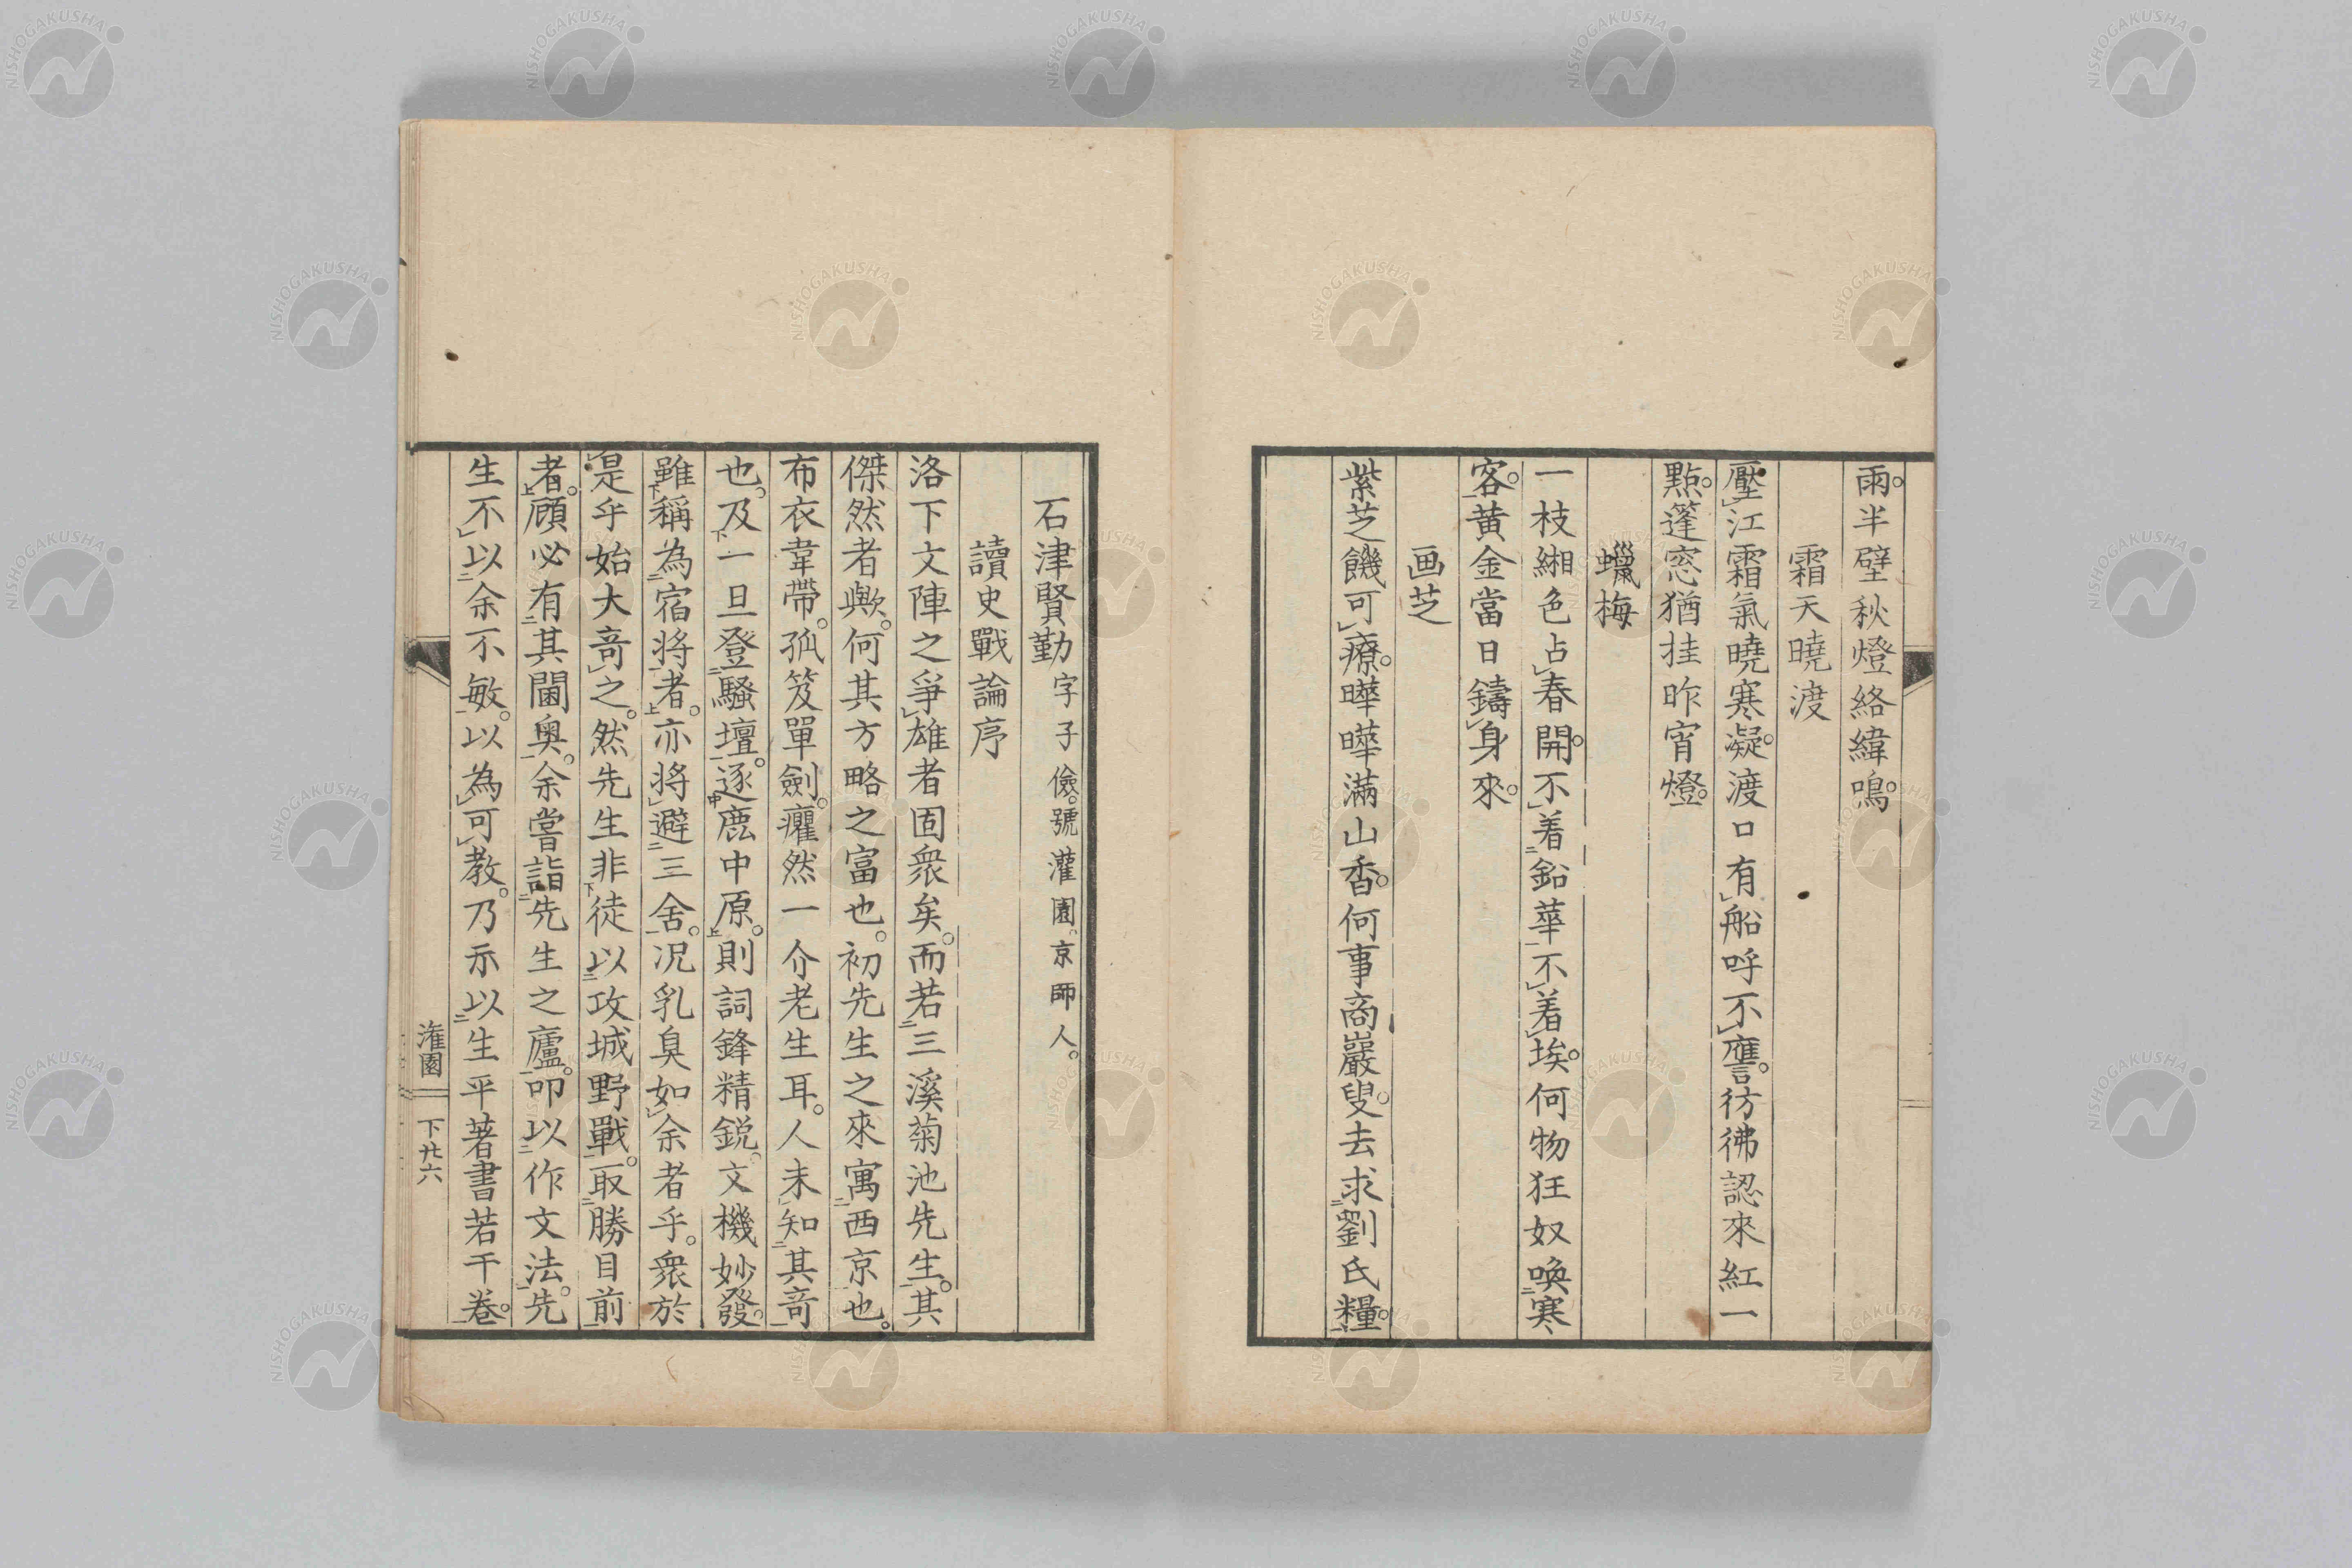 雨。半壁秋燈絡緯鳴。
霜天曉渡
壓江霜氣曉寒凝。渡口有船呼不譍。彷彿認來紅一
點。篷窓猶挂昨宵燈。
蠟梅
一枝緗色占春開。不着鉛華不着埃。何物狂奴喚寒
客。黄金當日鑄身來。
画芝
紫芝饑可療。曄曄滿山香。何事商巖叟。去求劉氏糧。
石津賢勤字子儉。號灌園。京師人。
讀史戰論序
洛下文陣之爭雄者固衆矣。而若三溪菊池先生。其
傑然者歟。何其方略之富也。初先生之來寓西京也。
布衣韋帶。孤笈單劍。癯然一介老生耳。人未知其竒
也。及一旦登騷壇。逐鹿中原。則詞鋒精鋭。文機妙發。
雖稱為宿將者。亦將避三舍。况乳臭如余者乎。衆於
是乎始大竒之。然先生非徒以攻城野戰。取勝目前
者。顧必有其閫奥。余嘗詣先生之廬。叩以作文法。先
生不以余不敏。以為可教。乃示以生平著書若干卷。
灌園 下廿六
NISHOGAKUSHA